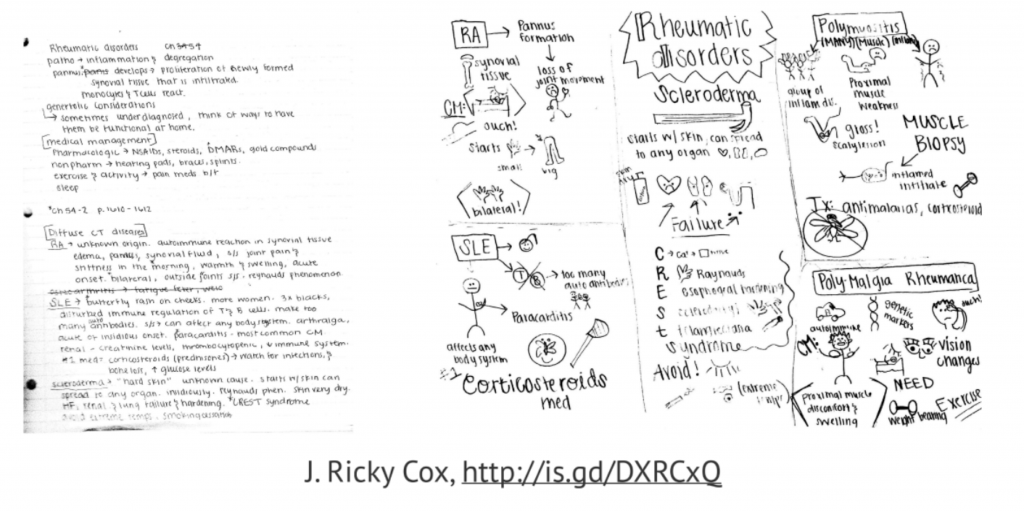 Rheumatic disorders ch 54
patho → inflammation & degregation
pannus develops → proliferation of newly formed
synovial tissue that is infiltrated.
monocytes & T cells react.
→ sometimes underdiagnosed, think of ways to have
them be functional at home.
[medical management]
Pharmacologic → NSAIDs, steroids, DMARs, gold compounds
nonpharm → heating pads, braces, splints.
exercise & activity → pain meds b/f
sleep
*Ch 54-2 p. 1610-1612
[Diffuse CT diseases]
RA → unknown origin. autoimmune reaction in synovial tissue
edema, pannus, synovial fluid, s/s joint pain &
stiffness in the morning, warmth & swelling, acute
onset. bilateral, outside joints s/s - reynauds phenomenon
SLE → butterfly rash on cheeks. more women. 3x blacks,
disturbed immune regulation of T & B cells. make too
many auto antibodies. s/s → can affect any body system. arthralgia,
acute or insidious onset. paracarditis - most common CM
renal - creatinine levels, thrombocytopenic, ↓ immune system.
#1 med: corticosteroids (prednisones) → watch for infections, &
bone loss, ↑ glucose levels
scleroderma → "hard skin" unknown cause. starts w/ skin can
spread to any organ. insidiously. Reynauds phen. skin very dry.
HF, renal & lung failure & hardening. *CREST syndrome
avoid extreme temps. smoking
RA → Pannus
formation
synovial
tissue
loss of
joint movement
CM:
ouch!
starts
small
big
bilateral!
SLE
T B → too many
auto antibodies
Paracarditis
affects any
body system
#1
Corticosteroids
med
Rheumatic
disorders
Scleroderma
starts w/ skin, can spread
to any organ
Failure
C → Ca+ →
R Raynauds
E esophageal hardening
S
t
syndrome
Avoid!
Polymyositis
(MANY) (Muscle)
group of
Proximal
muscle
weakness
gross!
MUSCLE
BIOPSY
inflamed
infiltrate
Tx: antimalarias, corticosteroid
Poly Malgia Rheumanica
autoimmune
genetic
markers
CM:
vision
changes
Proximal muscle
discomfort &
swelling
NEED
weight bearing
Exercise
J. Ricky Cox, http://is.gd/DXRCxQ